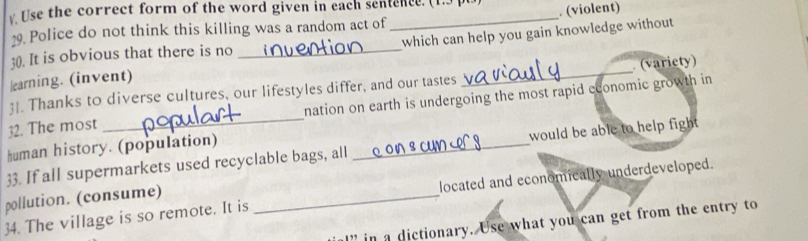 V. Use the correct form of the word given in each sentence. (1.5 pts)
29. Police do not think this killing was a random act of ______. (violent)
30. It is obvious that there is no invention which can help you gain knowledge without
learning. (invent)
31. Thanks to diverse cultures, our lifestyles differ, and our tastes variously. (variety)
32. The most populart nation on earth is undergoing the most rapid economic growth in
human history. (population)
33. If all supermarkets used recyclable bags, all consumers would be able to help fight
pollution. (consume)
34. The village is so remote. It is ______ located and economically underdeveloped.
in a dictionary. Use what you can get from the entry to